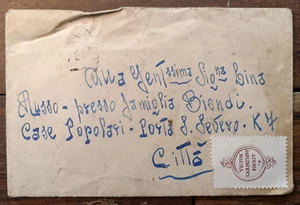 Alla Gentssima Signa Lina
Russo - presso famiglia Biondi.
Case Popolari - Porta S. Severo - K7
Città
VICTOR